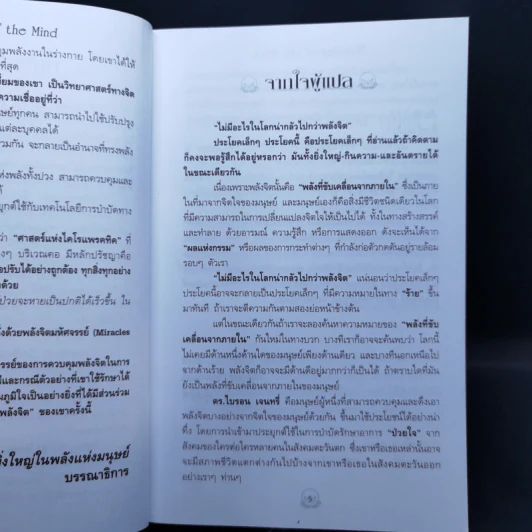 f the Mind
คุมพลังงานในร่างกาย โดยเขาได้ให้
ที่สุด
ยมของเขา เป็นวิทยาศาสตร์ทางจิต
ความเชื่ออยู่ที่ว่า
นุษย์ทุกคน สามารถนำไปใช้ปรับปรุง
แต่ละบุคคลได้
วมกัน จะกลายเป็นอำนาจที่ทรงพลัง
ห่งพลังทั้งปวง สามารถควบคุมและ
ยุกต์ใช้กับเทคโนโลยีการบำบัดทาง
ว่า "ศาสตร์แห่งไคโรแพรคทิค" ที่
งๆ บริเวณคอ มีหลักปรัชญาคือ
อปรับได้อย่างถูกต้อง ทุกสิ่งทุกอย่าง
งด้วย
ป่วยจะหายเป็นปกติได้เร็วขึ้น ใน
งด้วยพลังจิตมหัศจรรย์ (Miracles
รรย์ของการควบคุมพลังจิตในการ
มีและกรณีตัวอย่างที่เขาใช้รักษาได้
นภูมิใจเป็นอย่างยิ่งที่ได้มีส่วนร่วม
พลังจิต" ของเขาครั้งนี้
งใหญ่ในพลังแห่งมนุษย์
บรรณาธิการ
จากใจผู้แปล
"ไม่มีอะไรในโลกน่ากลัวไปกว่าพลังจิต"
ประโยคเล็กๆ ประโยคนี้ คือประโยคเล็กๆ ที่อ่านแล้วถ้าคิดตาม
ก็คงจะพอรู้สึกได้อยู่หรอกว่า มันทั้งยิ่งใหญ่-กินความ-และอันตรายได้
ในขณะเดียวกัน
เนื่องเพราะพลังจิตนั้นคือ "พลังที่ขับเคลื่อนจากภายใน" ซึ่งเป็นภาย
ในที่มาจากจิตใจของมนุษย์ และมนุษย์เองก็คือสิ่งมีชีวิตชนิดเดียวในโลก
ที่มีความสามารถในการเปลี่ยนแปลงจิตใจให้เป็นไปได้ ทั้งในทางสร้างสรรค์
และทำลาย ด้วยอารมณ์ ความรู้สึก หรือการแสดงออก ดังจะเห็นได้จาก
"ผลแห่งกรรม" หรือผลของการกระทำต่างๆ ที่กำลังก่อตัวกดดันอยู่รายล้อม
รอบๆ ตัวเรา
"ไม่มีอะไรในโลกน่ากลัวไปกว่าพลังจิต" แน่นอนว่าประโยคเล็กๆ
ประโยคนี้อาจจะกลายเป็นประโยคเล็กๆ ที่มีความหมายในทาง "ร้าย" ขึ้น
มาทันที ถ้าเราจะตีความกันตามสองย่อหน้าข้างต้น
แต่ในขณะเดียวกันถ้าเราจะลองค้นหาความหมายของ "พลังที่ขับ
เคลื่อนจากภายใน" กันใหม่ในทางบวก บางทีเราก็อาจจะค้นพบว่า โลกนี้
ไม่เคยมีด้านหนึ่งด้านใดของมนุษย์เพียงด้านเดียว และบางทีนอกเหนือไป
จากด้านร้าย พลังจิตก็อาจจะมีด้านดีอยู่มากกว่าก็เป็นได้ ถ้าตราบใดที่มัน
ยังเป็นพลังที่ขับเคลื่อนจากภายในของมนุษย์
ดร.ไบรอน เจนทรี่ คือมนุษย์ผู้หนึ่งที่สามารถควบคุมและดึงเอา
พลังจิตบางอย่างจากจิตใจของมนุษย์ด้วยกัน ขึ้นมาใช้ประโยชน์ได้อย่างน่า
ทึ่ง โดยการนำเข้ามาประยุกต์ใช้ในการบำบัดรักษาอาการ "ป่วยใจ" จาก
สังคมของใครต่อใครหลายคนในสังคมตะวันตก ซึ่งเขาหรือเธอเหล่านั้นอาจ
จะมีสภาพชีวิตแตกต่างกันไปบ้างจากเขาหรือเธอในสังคมตะวันออก
อย่างเราๆ ท่านๆ